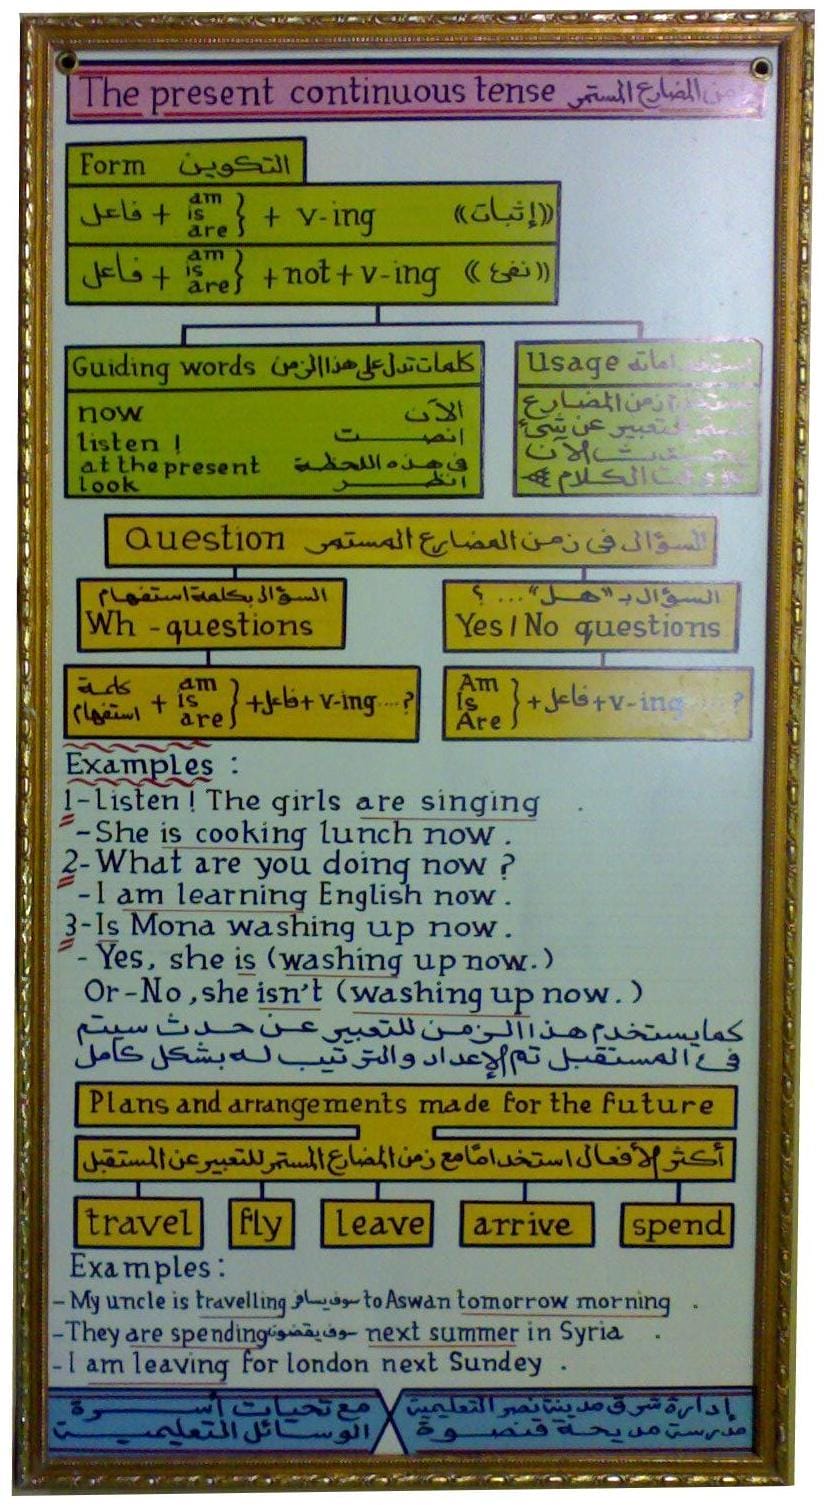 The present continuous tense زمن المضارع المستمر
Form التكوين
فاعل + am is are } + v-ing ((إثبات))
فاعل + am is are } + not + v-ing ((نفى))
Guiding words كلمات تدل على هذا الزمن
now الآن
listen ! انصت
at the present فى هذه اللحظة
look انظر
Usage
زمن المضارع
للتعبير عن شئ
الآن
الكلام
Question السؤال فى زمن المضارع المستمر
السؤال بكلمة استفهام
Wh - questions
السؤال بـ "هل" ... ؟
Yes / No questions
كلمة استفهام + am is are } + فاعل + v-ing ....?
Am Is Are } + فاعل + v-ing ....?
Examples :
1- Listen ! The girls are singing .
- She is cooking lunch now .
2- What are you doing now ?
- I am learning English now .
3- Is Mona washing up now .
- Yes, she is (washing up now.)
Or - No, she isn't (washing up now.)
كما يستخدم هذا الزمن للتعبير عن حدث سيتم
فى المستقبل تم الإعداد والترتيب له بشكل كامل
Plans and arrangements made for the future
أكثر الأفعال استخدامًا مع زمن المضارع المستمر للتعبير عن المستقبل
travel fly leave arrive spend
Examples :
- My uncle is travelling سوف يسافر to Aswan tomorrow morning .
- They are spending سوف يقضون next summer in Syria .
- I am leaving for london next Sundey .
إدارة شرق مدينة نصر التعليمية
مدرسة مديحة قنصوة
مع تحيات أسرة
الوسائل التعليمية